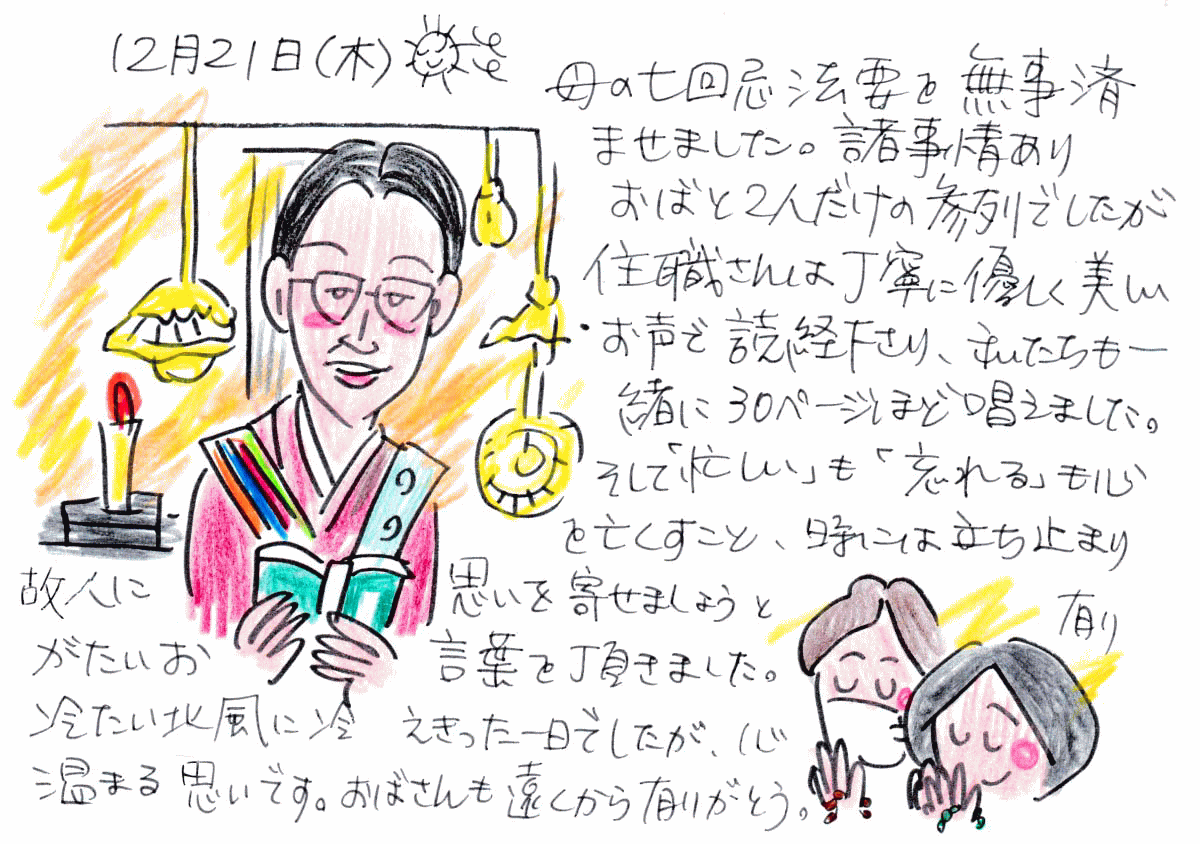 12月21日(木)
母の七回忌法要を無事済
ませました。諸事情あり
おばと2人だけの参列でしたが
住職さんは丁寧に優しく美しい
お声で読経下さり、私たちも一
緒に30ページほど唱えました。
そして「忙しい」も「忘れる」も心
を亡くすこと、時には立ち止まり
故人に思いを寄せましょうと有り
がたいお言葉を頂きました。
冷たい北風に冷えきった一日でしたが、心
温まる思いです。おばさんも遠くから有りがとう。